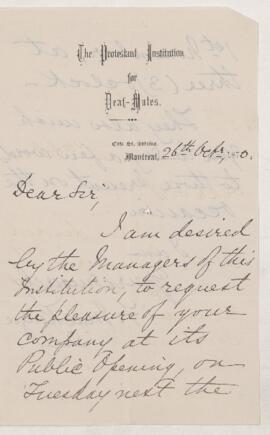 The Protestant Institution
for
Deaf-Mutes.
Montreal, 26th Octr, 1870.
Dear Sir,
I am desired
by the Managers of this
Institution, to request
the pleasure of your
company at its
Public Opening, on
Tuesday next the